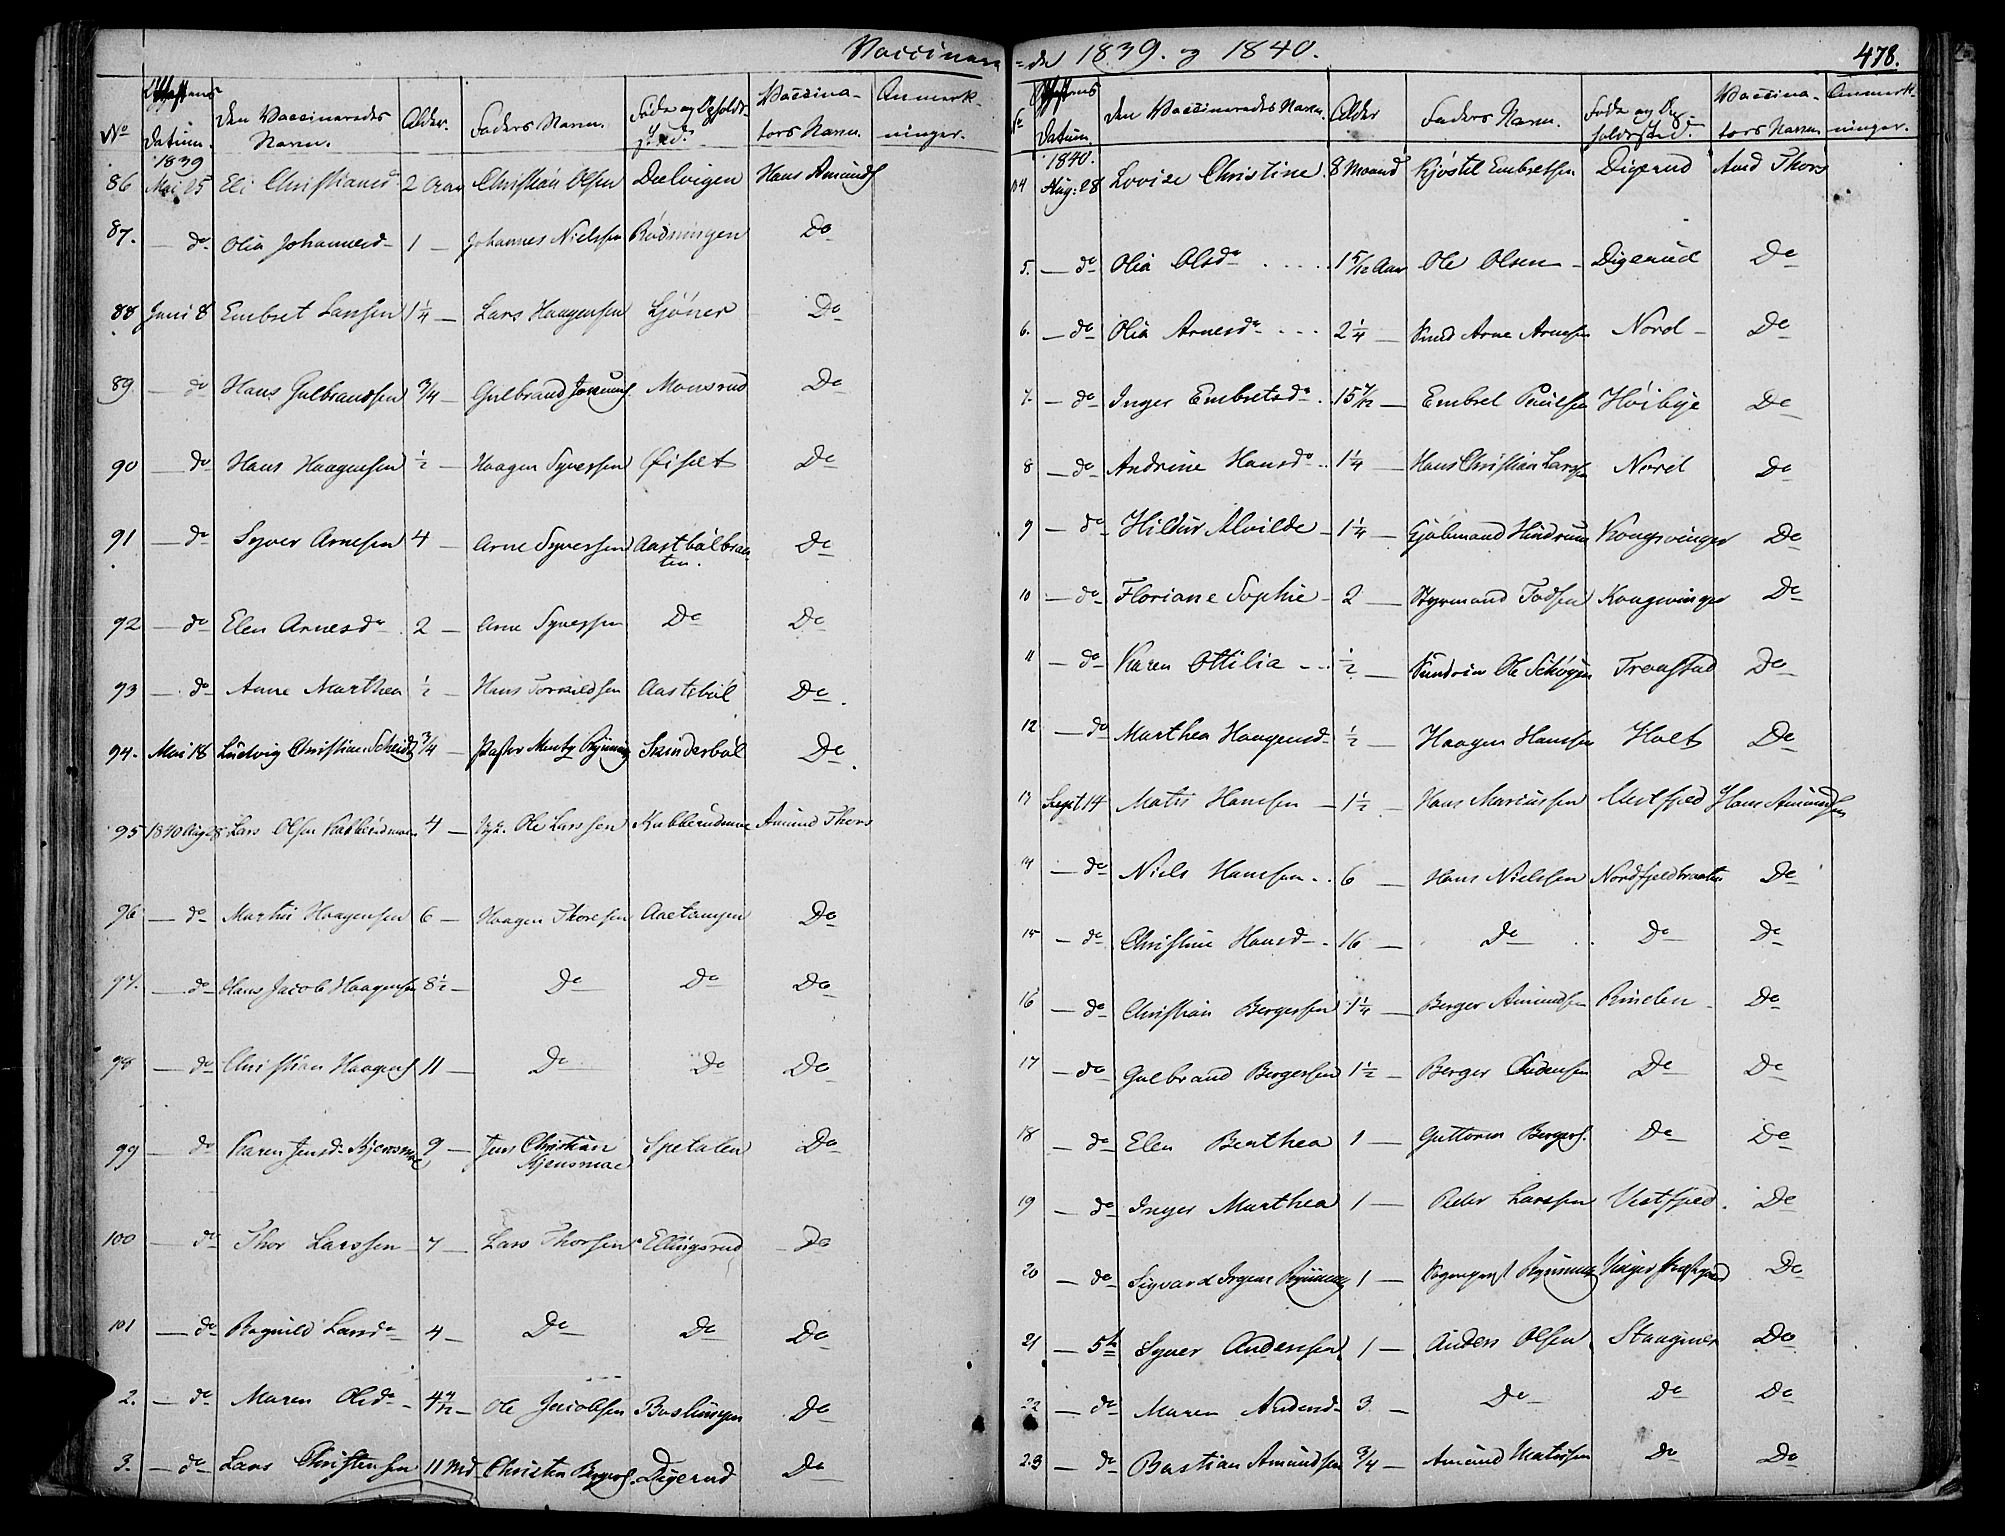 Vaccinere=de 1839. og 1840.
478.
No
Datum.
Den Vaccineredes Navn.
Alder.
Faders Navn.
Føde og Opholds-sted.
Vaccina-tors Navn.
Anmærk-ninger.
1839
86 Mai 25 Eli Christiansd 2 Aar Christian Olsen Dælvigen Hans Amunds
87. — do Olia Johannesd 1 — Johannes Nielssen Rødningen Do
88 Juni 8 Embret Larssen 1 1/4 — Lars Haagensen Sjøner Do
89 — do Hans Gulbrandsen 3/4 — Gulbrand Monsrud Do
90 — do Hans Haagensen 1/2 — Haagen Syversen Øiset Do
91 — do Syver Arnesen 4 — Arne Syversen Aastbølbraa-ten. Do
92 — do Elen Arnesdr 2 — Arne Syversen Do Do
93 — do Anne Marthea 1/2 — Hans Aastebøl Do
94. Mai 18 Ludvig Christian Scheidt 3/4 — Pastor Mentz Rynning Sunderbøl Do
95 1840 Aug 28 Lars Olsen 4 — Ole Larssen Amund Thors
96 — do Martin Haagensen 6 — Haagen Thoresen Aaetangen Do
97. — do Hans Jacob Haagensen 8 1/2 — Do Do Do
98 — do Christian Haagens 11 — Do Do Do
99 — do Karen Jensd Kjensmoe 9 — Jens Christian Kjensmoe Spetalen Do
100 — do Thor Larssen 7 — Lars Thorsen Ellingsrud Do
101 — do Ragnild Larsdr 4 — Do Do Do
2. — do Maren Olsdr 4 7/12 — Ole Jacobsen Baslingen Do
3. — do Lars Christensen 11 Md Christen Bergers. Digerud Do
No
Datum.
Den Vaccineredes Navn.
Alder
Faders Navn.
Føde og Op-holdssted.
Vaccina-tors Navn
Anmærk-ninger.
1840.
104 Aug: 28 Lovise Christine 8 Maaned Kjøstel Embretsen Digerud Amd Thors
5. — do Olia Olsdr 1 5/12 Aar Ole Olsen Digerud Do
6. — do Olia Arnesdr 2 1/4 — Arne Arnesen Nord Do
7. — do Inger Embretsdr 15 7/12 — Embret Poulsen Høibye Do
8 — do Andrine Hansdr 1 1/4 — Hans Christian Larssen Nord Do
9 — do Hildur Alvilde 1 1/4 — Kongsvinger Do
10 — do Floriane Sophie 2 — Styrmand Kongsvinger Do
11 — do Karen Ottilia 1/2 — Ole Do
12 — do Marthea Haagensd 1/2 — Haagen Hanssen Holt Do
13 Sept 14 Matis Hanssen 1 1/2 — Hans Mariussen Vestfjed Hans Amundsen
14 — do Niels Hanssen 6 — Hans Nielssen Nordfjeldbraaten Do
15 — do Christine Hansd 16 — Do Do Do
16 — do Christian Bergersen 1 1/4 — Berger Amundsen Rinden Do
17 — do Gulbrand Bergersen 1 1/2 — Berger Do Do
18 — do Elen Berthea 1 — Guttorm Bergers. Do Do
19 — do Inger Marthea 1 — Peder Larssen Vestfjed Do
20 — do Sigvard Rynning 1 — Sognepræst Rynning Vinger Præstegaard Do
21 — 5te Syver Anderssen 1 — Anders Olsen Do
22 — do Maren Andersd 3 — Do Do Do
23 — do Bastian Amundsen 3/4 — Amund Matissen Do Do